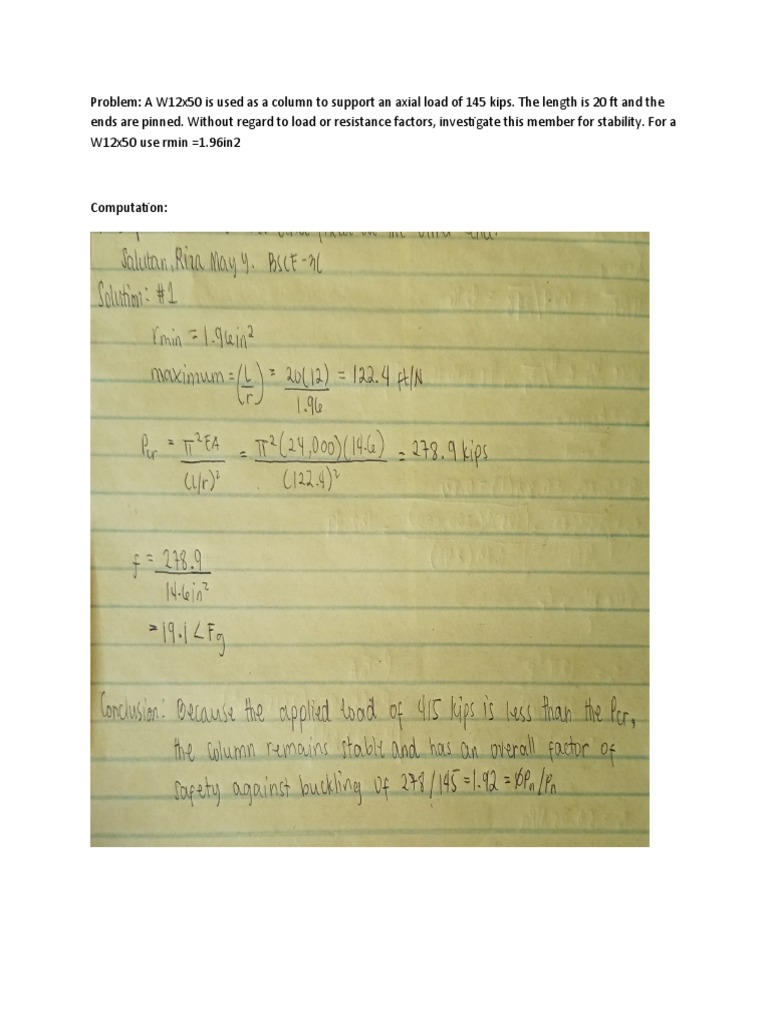 Problem: A W12x50 is used as a column to support an axial load of 145 kips. The length is 20 ft and the
ends are pinned. Without regard to load or resistance factors, investigate this member for stability. For a
W12x50 use rmin =1.96in2
Computation:
Salutan, Riza May Y. BSCE-3C
Solution: #1
rmin = 1.96in²
maximum = (L/r) = 20(12)/1.96 = 122.4 ft/N
Pcr = π²EA/(L/r)² = π²(24,000)(14.6)/(122.4)² = 278.9 kips
f = 278.9/14.6in²
= 19.1 < Fg
Conclusion: Because the applied load of 415 kips is less than the Pcr,
the column remains stable and has an overall factor of
safety against buckling of 278/145 = 1.92 = ϕPn/Pn